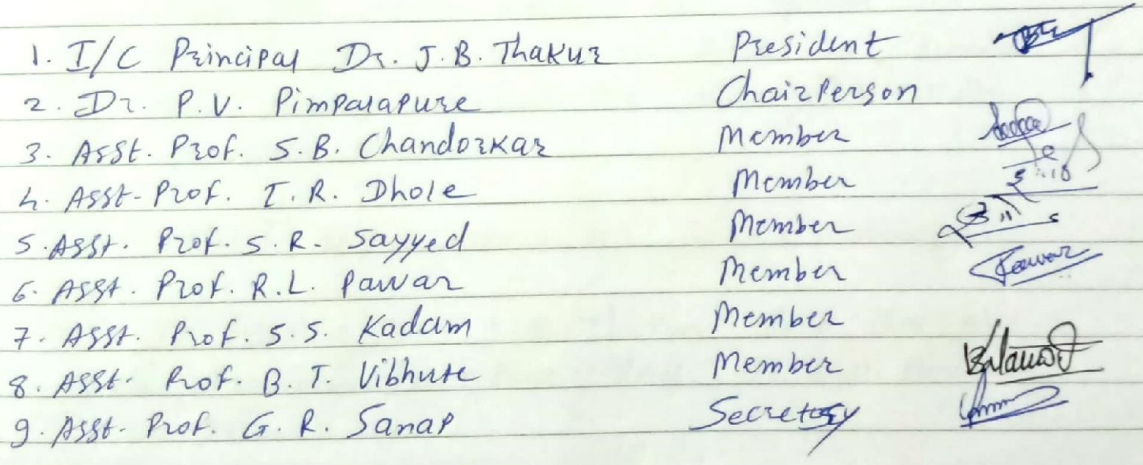 1. I/C Principal Dr. J.B. Thakur President
2. Dr. P.V. Pimparapure Chairperson
3. Asst. Prof. S.B. Chandorkar Member
4. Asst. Prof. I.R. Dhole Member
5. Asst. Prof. S.R. Sayyed Member
6. Asst. Prof. R.L. Pawar Member Pawar
7. Asst. Prof. S.S. Kadam Member
8. Asst. Prof. B.T. Vibhute Member
9. Asst. Prof. G.R. Sanap Secretary